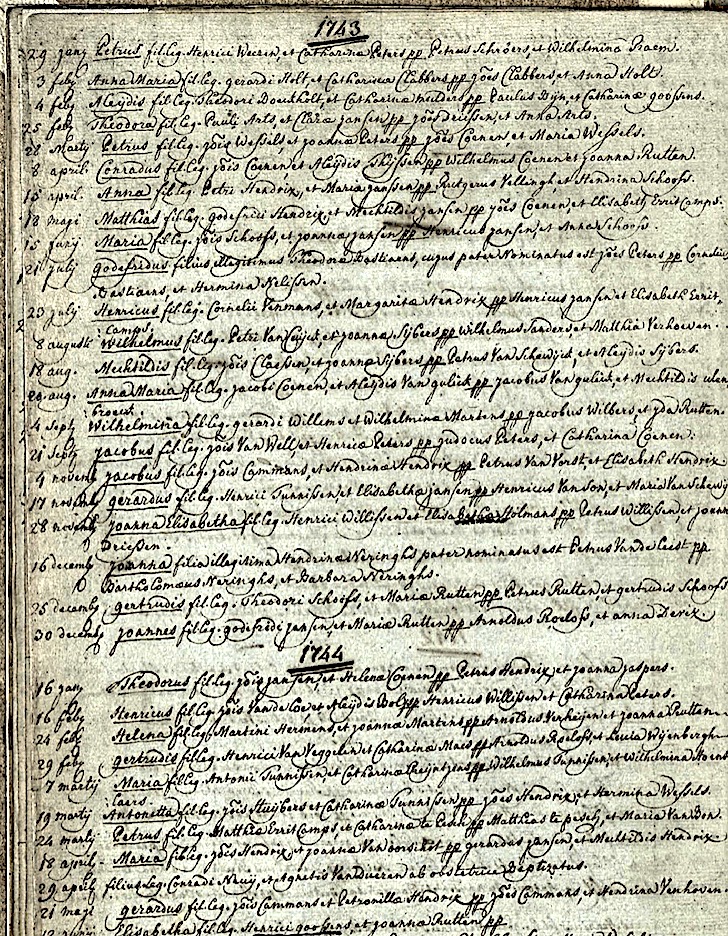 1743
29 janÿ Petrus fil. leg. Henrici et Catharinæ Peters pp Petrus Schröers, et Wilhelmina Raem.
3 febÿ Anna Maria fil. leg. gerardi Holt, et Catharinæ Clabbers pp jöes Clabbers, et Anna Holt.
4 febÿ Aleÿdis fil. leg. Theodori Douckholt, et Catharinæ mulders pp Paulus Dÿn, et Catharinæ goossens.
25 febÿ Theodora fil. leg. Pauli Arts, et Claræ jansen pp jöes driessen, et Anna Arts.
28 Martÿ Petrus fil. leg. jöis Wessels, et joannæ Peters pp jöes Coenen, et Maria Wessels.
8 april. Conradus fil. leg. jöis Coenen et Aleÿdis Thÿssen pp Wilhelmus Coenen et joanna Rutten.
15 april. Anna fil. leg. Petri Hendrix, et Maria jansen pp Rutgerus Vellingh et Hendrina Schoofs.
18 maji Matthias fil. leg. godefridi Hendrix, et Mechtildis jansen pp jöes Coenen, et Elisabeth Erritcamps.
15 junÿ Maria fil. leg. jöis Schoofs, et joannæ jansen pp Henricus jansen, et Anna Schoofs.
21 julÿ godefridus filius illegitimus Theodoræ Bastiaens, cujus pater Nominatus est jöes Peters pp Cornelius
Bastiaens, et Hermina Nelissen.
23 julÿ Henricus fil. leg. Cornelii Venmans, et Margaritæ Hendrix pp Henricus jansen et Elisabeth Errit
camps.
8 augusti Wilhelmus fil. leg. Petri Van Cuÿck, et joannæ Sÿbers pp Wilhelmus Sanders, et Matthia Verhoeven.
18 aug. Mechtildis fil. leg. jöis Claessen, et joannæ Sÿbers pp Petrus Van Schewÿck, et Aleÿdis Sÿbers.
29 aug. Anna Maria fil. leg. jacobi Coenen, et Aleÿdis Van gulick pp jacobus Van gulick, et Mechtildis ulen
broeck.
4 septÿ Wilhelmina fil. leg. gerardi Willems et Wilhelmina Martens pp jacobus Wilbers, et ÿda Rutten
21 septÿ jacobus fil. leg. jöis Van Well, et Henricæ Peters pp judocus Peters, et Catharina Coenen.
4 novemb jacobus fil. leg. jöis Cammans et Hendrinæ Hendrix pp Petrus Van Vorst, et Elisabeth Hendrix
17 novemb gerardus fil. leg. Henrici Tunnissen, et Elisabethæ jansen pp Henricus Van Son, et Maria Van Schewÿ
28 novemb joanna Elisabetha fil. leg. Henrici Willissen et Elisabethæ Holmans pp Petrus Willissen, et joann
Driessen.
16 decemb joanna filia illegitima Hendrinæ Neringhs pater nominatus est Petrus Van de Leest pp
Bartholomæus Neringhs, et Barbara Neringhs.
25 decemb gertrudis fil. leg. Theodori Schoofs, et Mariæ Rutten pp Petrus Rutten, et gertrudis Schoofs
30 decemb joannes fil. leg. godefridi jansen, et Mariæ Rutten pp Arnoldus Roelofs, et anna Derix
1744
16 janÿ Theodorus fil. leg. jöis jansen, et Helenæ Coenen pp Petrus Hendrix, et joanna jaspers.
16 febÿ Henricus fil. leg. jöis Van de Loe et Aleÿdis pp Henricus Willissen et Catharina Peters.
24 feb Helena fil. leg. Martini Hermens, et joannæ Martens pp Arnoldus Verheÿen et joanna Rutten
29 febÿ gertrudis fil. leg. Henrici Van Veggelen et Catharinæ Maes pp Arnoldus Roelofs et Lucia Wÿenbergh
7 martÿ Maria fil. leg. Antonii Tunnissen, et Catharinæ pp Wilhelmus Tunnissen, et Wilhelmina
laers.
19 martÿ Antonetta fil. leg. jöis Stuÿbers et Catharinæ Tunnissen pp jöes Hendrix, et Hermina Wessels.
24 martÿ Petrus fil. leg. Matthiæ Erritcamps, et Catharinæ te Pesch pp Matthias te pesch, et Maria Van Bon.
18 april Maria fil. leg. jöis Hendrix, et joannæ Van pp gerardus jansen, et Mechtildis Hendrix
29 april filius leg. Conradi Neuÿ, et Agnetis Van Dueren ab obstetrice Baptizatus.
21 maji gerardus fil. leg. jöis Cammans et Petronillæ Hendrix pp jöes Cammans, et Hendrina Venhoven
12 junÿ Elisabetha fil. leg. Henrici goossens, et joannæ Rutten pp